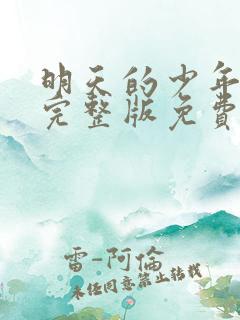 明天的少年
完整版免費
雷-阿倫
未经同意禁止转载